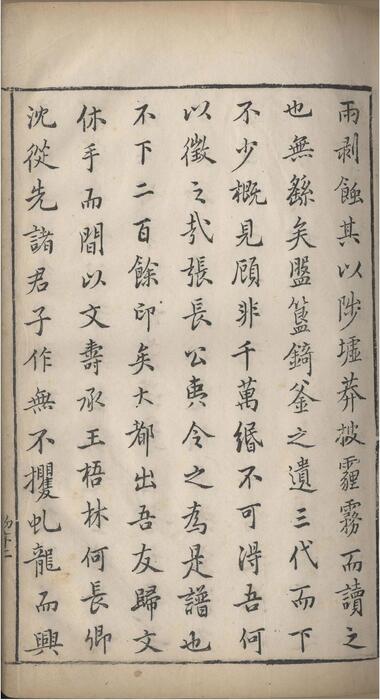 雨剥蝕其以陟墟莽披霾霧而讀之
也無繇矣盤簋錡釜之遺三代而下
不少概見顧非千萬緡不可得吾何
以徵之哉張長公輿令之為是譜也
不下二百餘印矣大都出吾友歸文
休手而間以文壽承王梧林何長卿
沈從先諸君子作無不攫虬龍而興